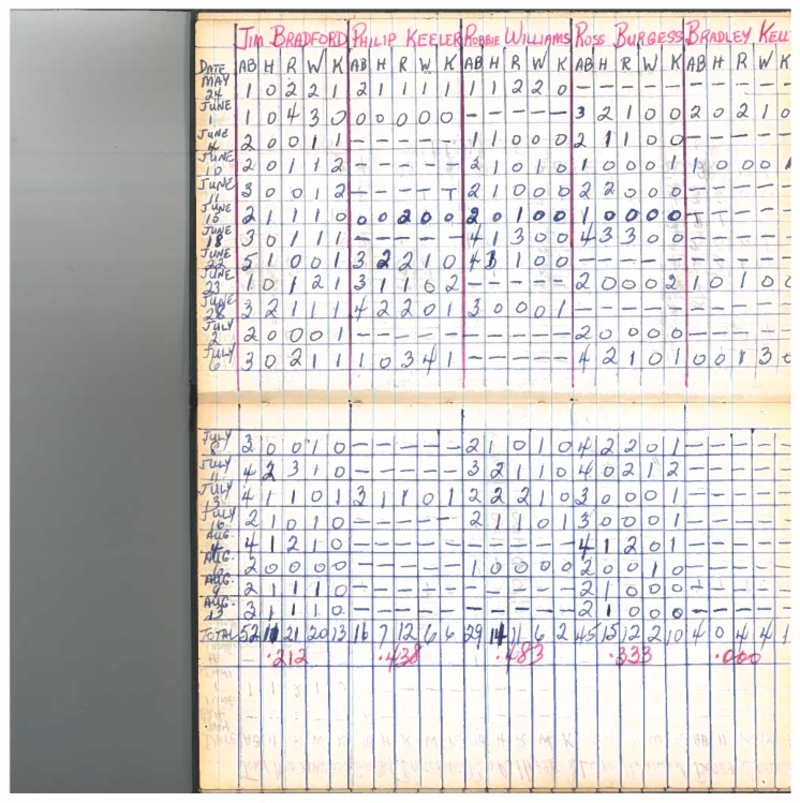 JIM BRADFORD PHILIP KEELER ROBBIE WILLIAMS ROSS BURGESS BRADLEY KELL
DATE AB H R W K AB H R W K AB H R W K AB H R W K AB H R W K
MAY 24 1 0 2 2 1 2 1 1 1 1 1 1 2 2 0 - - - - - - - - -
JUNE 1 1 0 4 3 0 0 0 0 0 0 - - - - - 3 2 1 0 0 2 0 2 1 0
JUNE 4 2 0 0 1 1 - - - - - 1 1 0 0 0 2 1 1 0 0 - - - -
JUNE 10 2 0 1 1 2 - - - - - 2 1 0 1 0 1 0 0 0 1 1 0 0 0
JUNE 11 3 0 0 1 2 - - - - - 2 1 0 0 0 2 2 0 0 0 - - - -
JUNE 15 2 1 1 1 0 0 0 2 0 0 2 0 1 0 0 1 0 0 0 0 - - - -
JUNE 18 3 0 1 1 1 - - - - - 4 1 3 0 0 4 3 3 0 0 - - - -
JUNE 22 5 1 0 0 1 3 2 2 1 0 4 1 0 0 - - - - - - - - -
JUNE 23 1 0 1 2 1 3 1 1 0 2 - - - - - 2 0 0 0 2 1 0 1 0 0
JUNE 28 3 2 1 1 1 4 2 2 0 1 3 0 0 0 1 - - - - - - - - -
JULY 2 2 0 0 0 1 - - - - - - - - - - 2 0 0 0 0 - - - -
JULY 6 3 0 2 1 1 1 0 3 4 1 - - - - - 4 2 1 0 1 0 0 1 3 0
JULY 3 0 0 1 0 - - - - - 2 1 0 1 0 4 2 2 0 1 - - - -
JULY 11 4 2 3 1 0 - - - - - 3 2 1 1 0 4 0 2 1 2 - - - -
JULY 13 4 1 1 0 1 3 1 1 0 1 2 2 2 1 0 3 0 0 0 1 - - - -
JULY 16 2 1 0 1 0 - - - - - 2 1 1 0 1 3 0 0 0 1 - - - -
AUG. 4 4 1 2 1 0 - - - - - - - - - - 4 1 2 0 1 - - - -
AUG. 6 2 0 0 0 0 - - - - - 1 0 0 0 0 2 0 0 1 0 - - - -
AUG. 9 2 1 1 1 0 - - - - - - - - - - 2 1 0 0 0 - - - -
AUG. 13 3 1 1 1 0 - - - - - - - - - - 2 1 0 0 0 - - - -
TOTAL 52 11 21 20 13 16 7 12 6 6 29 14 11 6 2 45 15 12 2 10 4 0 4 4 1
.212 .438 .483 .333 .000